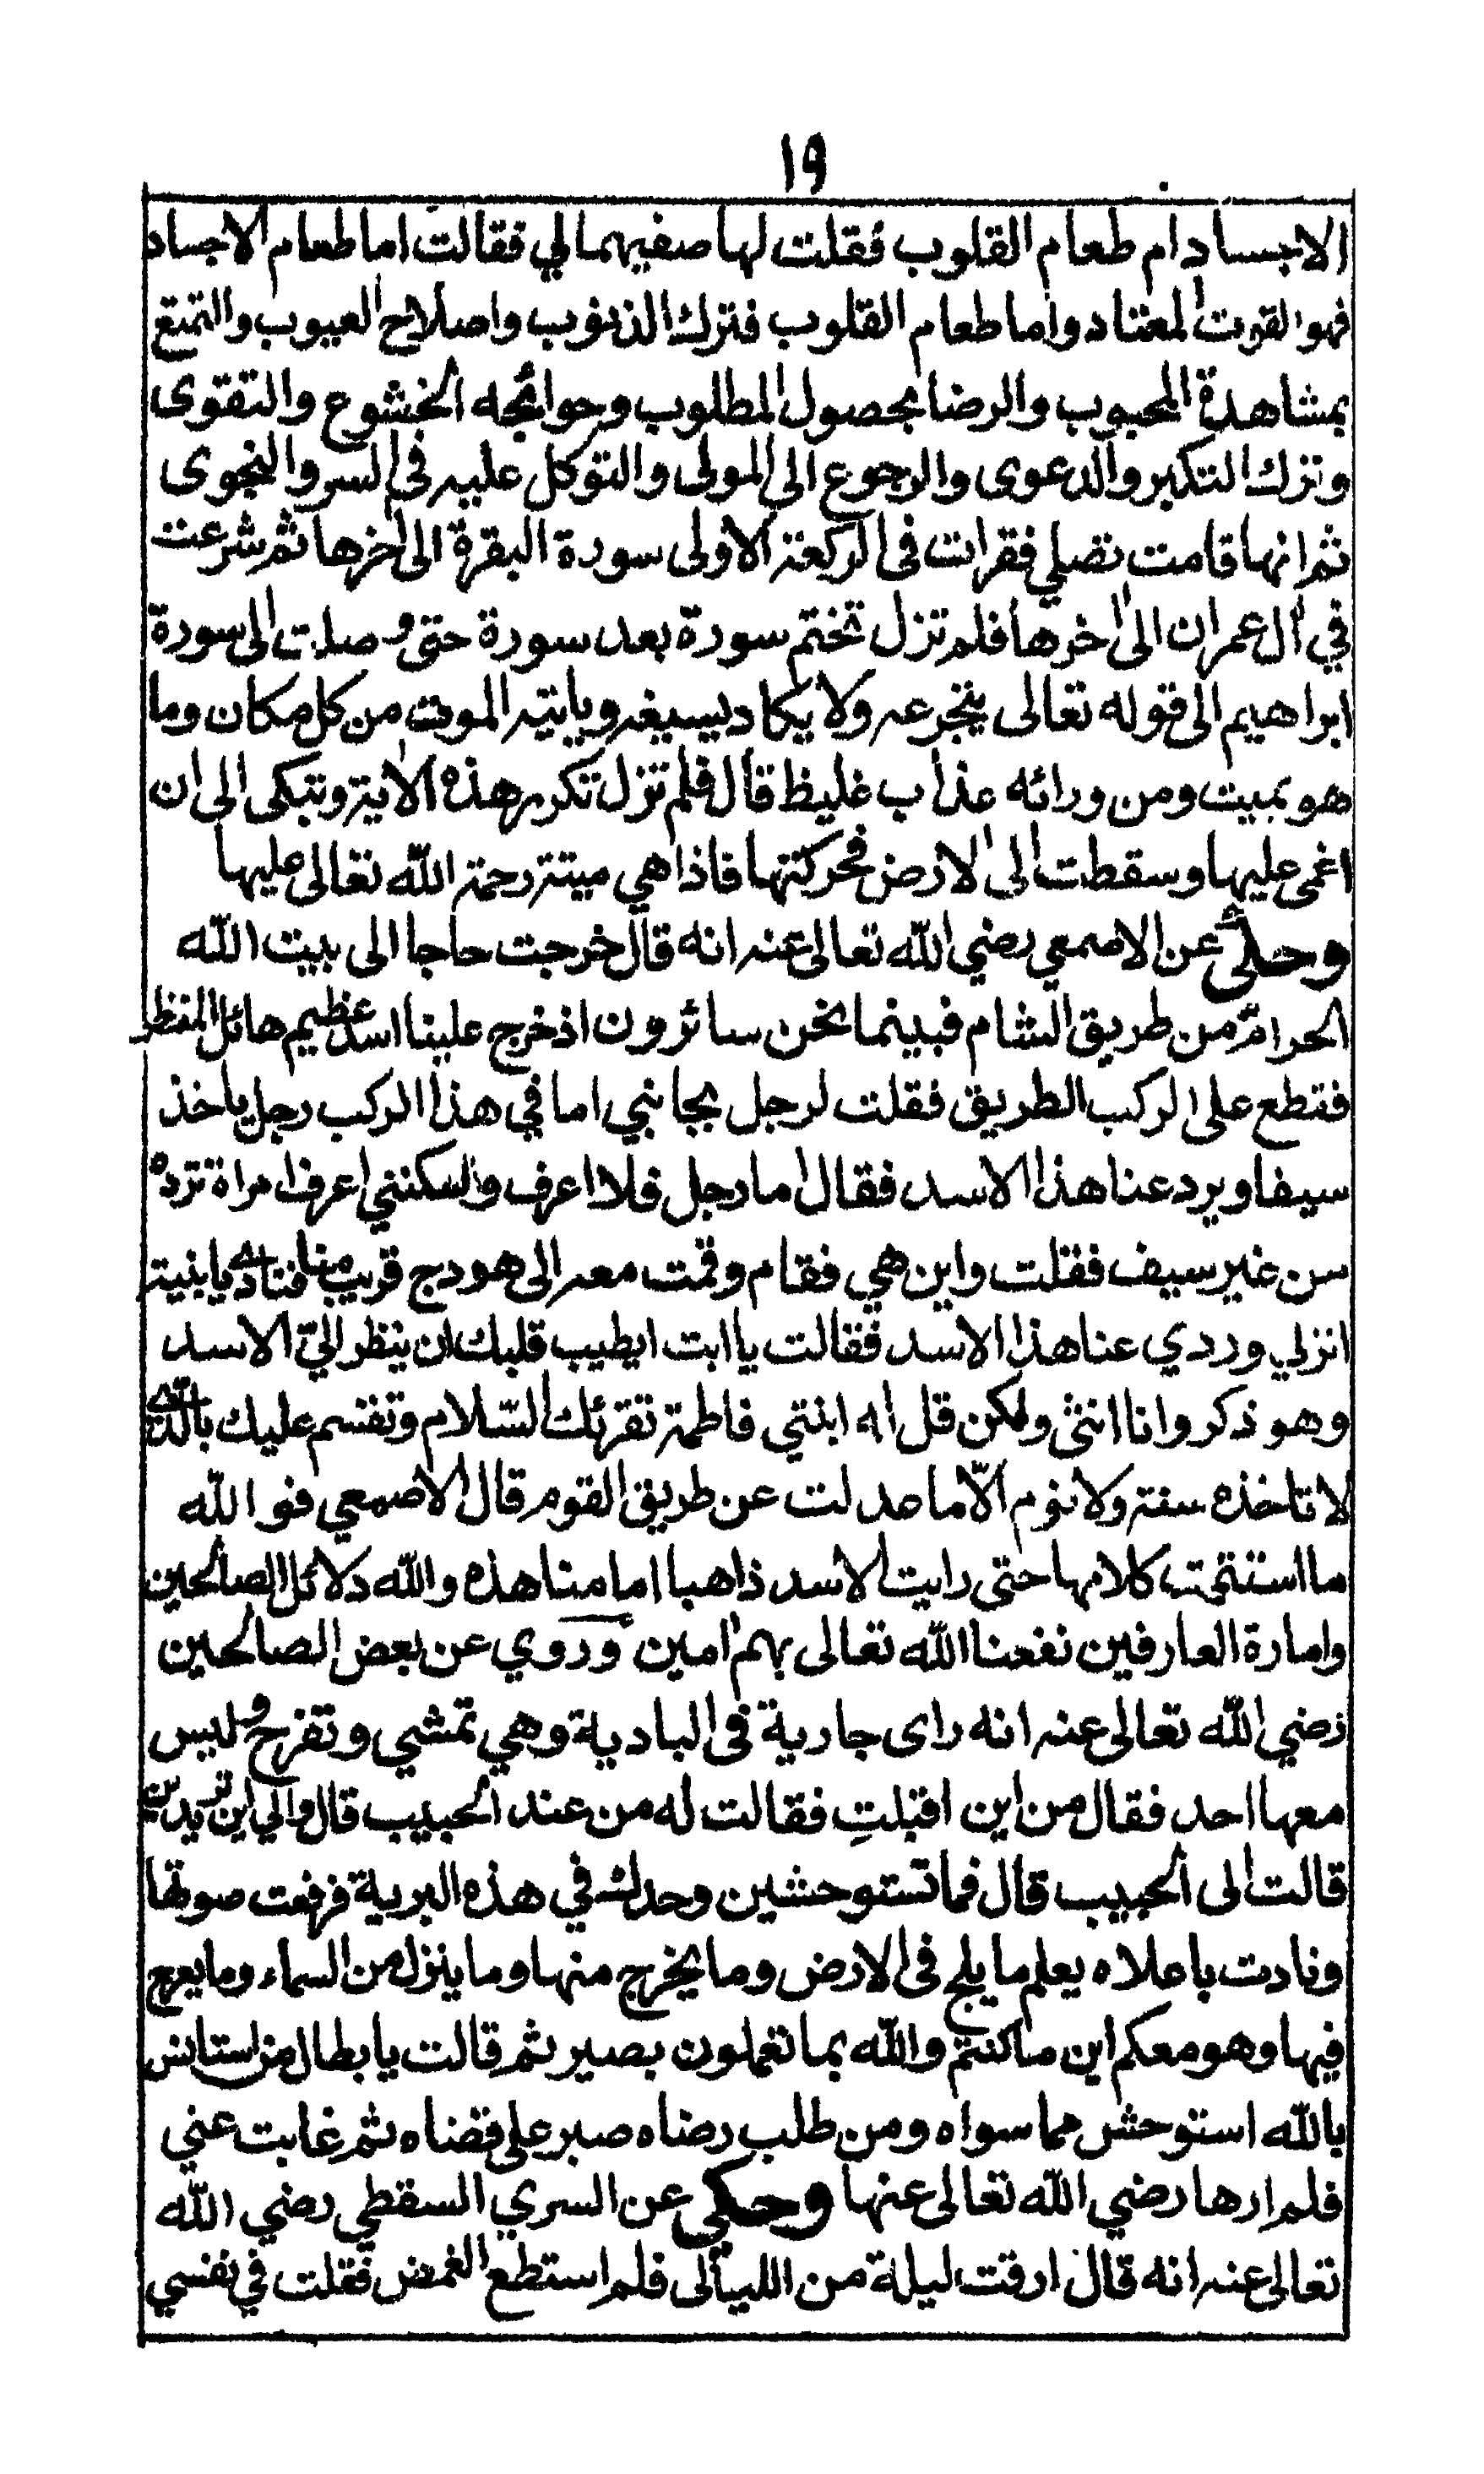 ١٩
الاجساد ام طعام القلوب فقلت لها صفيهما لي فقالت اما طعام الاجساد
فهو القوت المعتاد واما طعام القلوب فترك الذنوب واصلاح العيوب والتمتع
بمشاهدة المحبوب والرضا بحصول المطلوب وحوائجه الخشوع والتقوى
وترك التكبر والدعوى والرجوع الى المولى والتوكل عليه في السر والنجوى
ثم انها قامت تصلي فقرات فى الركعة الاولى سورة البقرة الى اخرها ثم شرعت
في ال عمران الى اخرها فلم تزل تختم سورة بعد سورة حتى وصلت الى سورة
ابراهيم الى قوله تعالى يتجرعه ولا يكاد يسيغه وياتيه الموت من كل مكان وما
هو بميت ومن ورائه عذاب غليظ قال فلم تزل تكرر هذه الاية وتبكى الى ان
اغمى عليها وسقطت الى الارض فحركتها فاذا هي ميتة رحمة الله تعالى عليها
وحكى عن الاصمعي رضي الله تعالى عنه انه قال خرجت حاجا الى بيت الله
الحرام من طريق الشام فبينما نحن سائرون اذ خرج علينا اسد عظيم هائل المنظر
فقطع على الركب الطريق فقلت لرجل بجانبي اما في هذا الركب رجل ياخذ
سيفا ويرد عنا هذا الاسد فقال اما رجل فلا اعرف ولكنني اعرف امراة ترده
من غير سيف فقلت واين هي فقام وقمت معه الى هودج قريب منا فنادى يا بنية
انزلي وردي عنا هذا الاسد فقالت يا ابت ايطيب قلبك ان ينظر الي الاسد
وهو ذكر وانا انثى ولكن قل له ابنتي فاطمة تقرئك السلام وتقسم عليك بالذي
لا تاخذه سنة ولا نوم الا ما عدلت عن طريق القوم قال الاصمعي فو الله
ما استتمت كلامها حتى رايت الاسد ذاهبا امامنا هذه والله دلائل الصالحين
وامارة العارفين نفعنا الله تعالى بهم امين وروي عن بعض الصالحين
رضي الله تعالى عنه انه راى جارية فى البادية وهي تمشي وتفرح وليس
معها احد فقال من اين اقبلتِ فقالت له من عند الحبيب قال والي اين تريدين
قالت الى الحبيب قال فما تستوحشين وحدك في هذه البرية فرفعت صوتها
ونادت باعلاه يعلم ما يلج فى الارض وما يخرج منها وما ينزل من السماء وما يعرج
فيها وهو معكم اين ما كنتم والله بما تعملون بصير ثم قالت يا بطال من استانس
بالله استوحش مما سواه ومن طلب رضاه صبر على قضاه ثم غابت عني
فلم ارها رضي الله تعالى عنها وحكي عن السري السقطي رضي الله
تعالى عنه انه قال ارقت ليلة من الليالى فلم استطع الغمض فقلت في نفسي